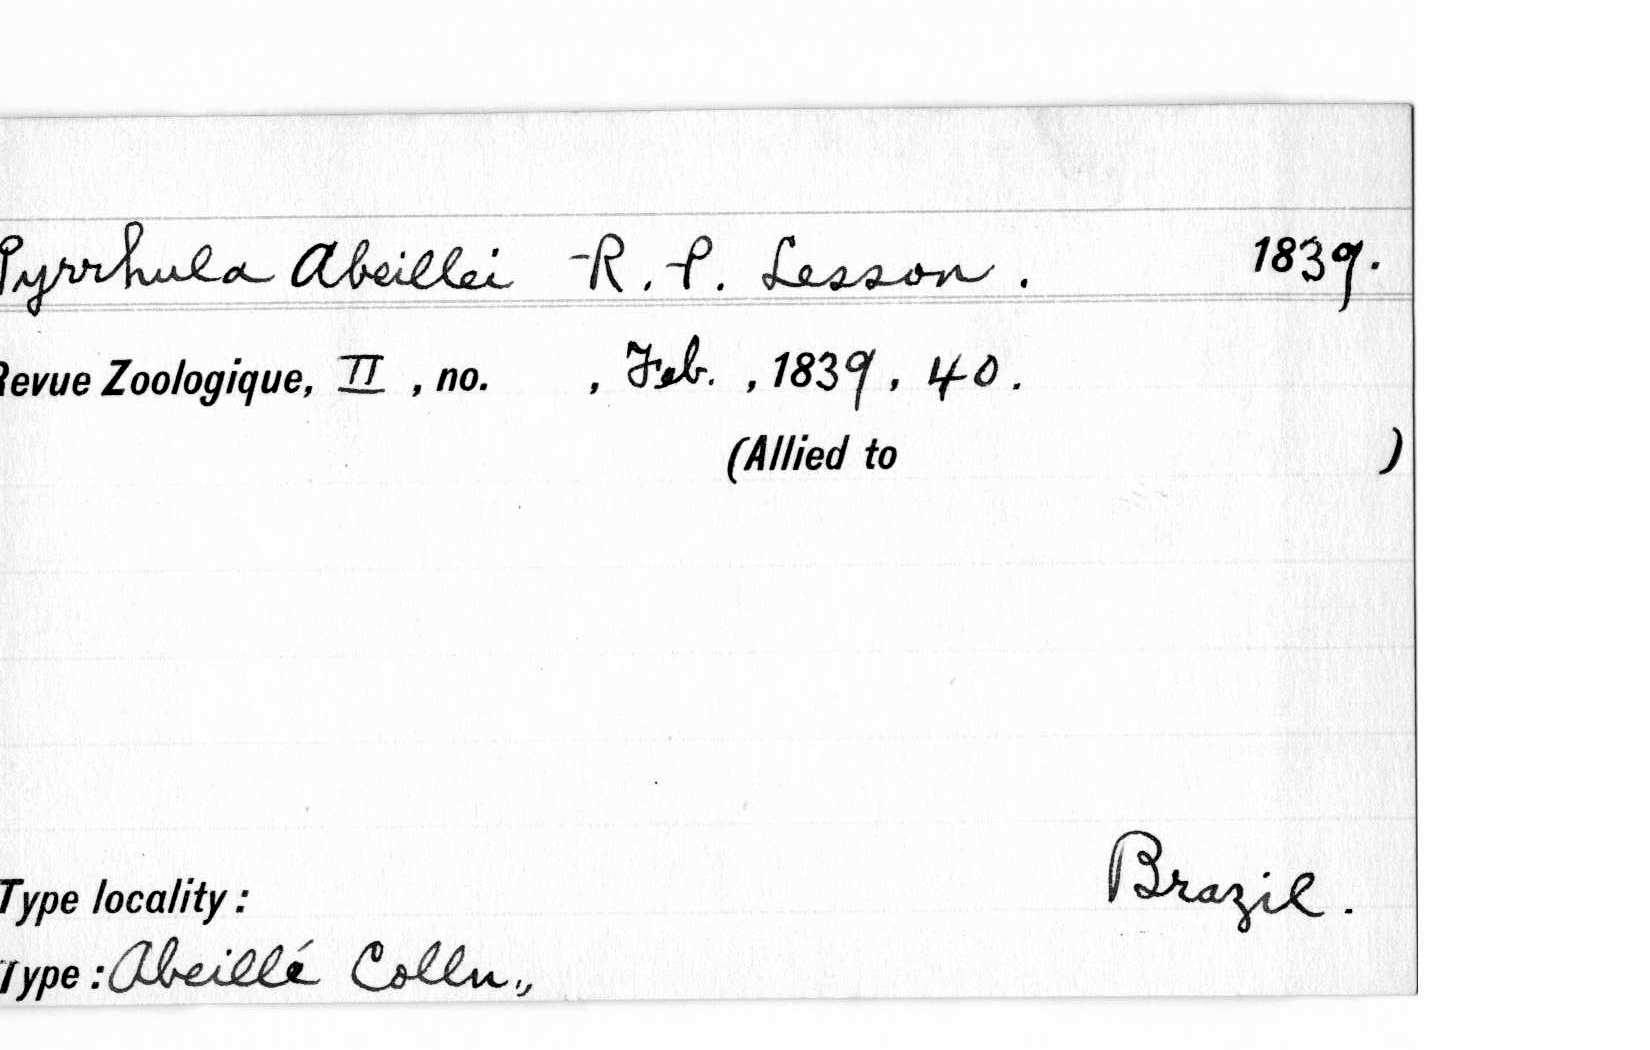 Pyrrhula Abeillei R. P. Lesson. 1839.
Revue Zoologique, II, no. , Feb. , 1839, 40.
(Allied to )
Brazil.
Type locality:
Type: Abeillé Colln.,